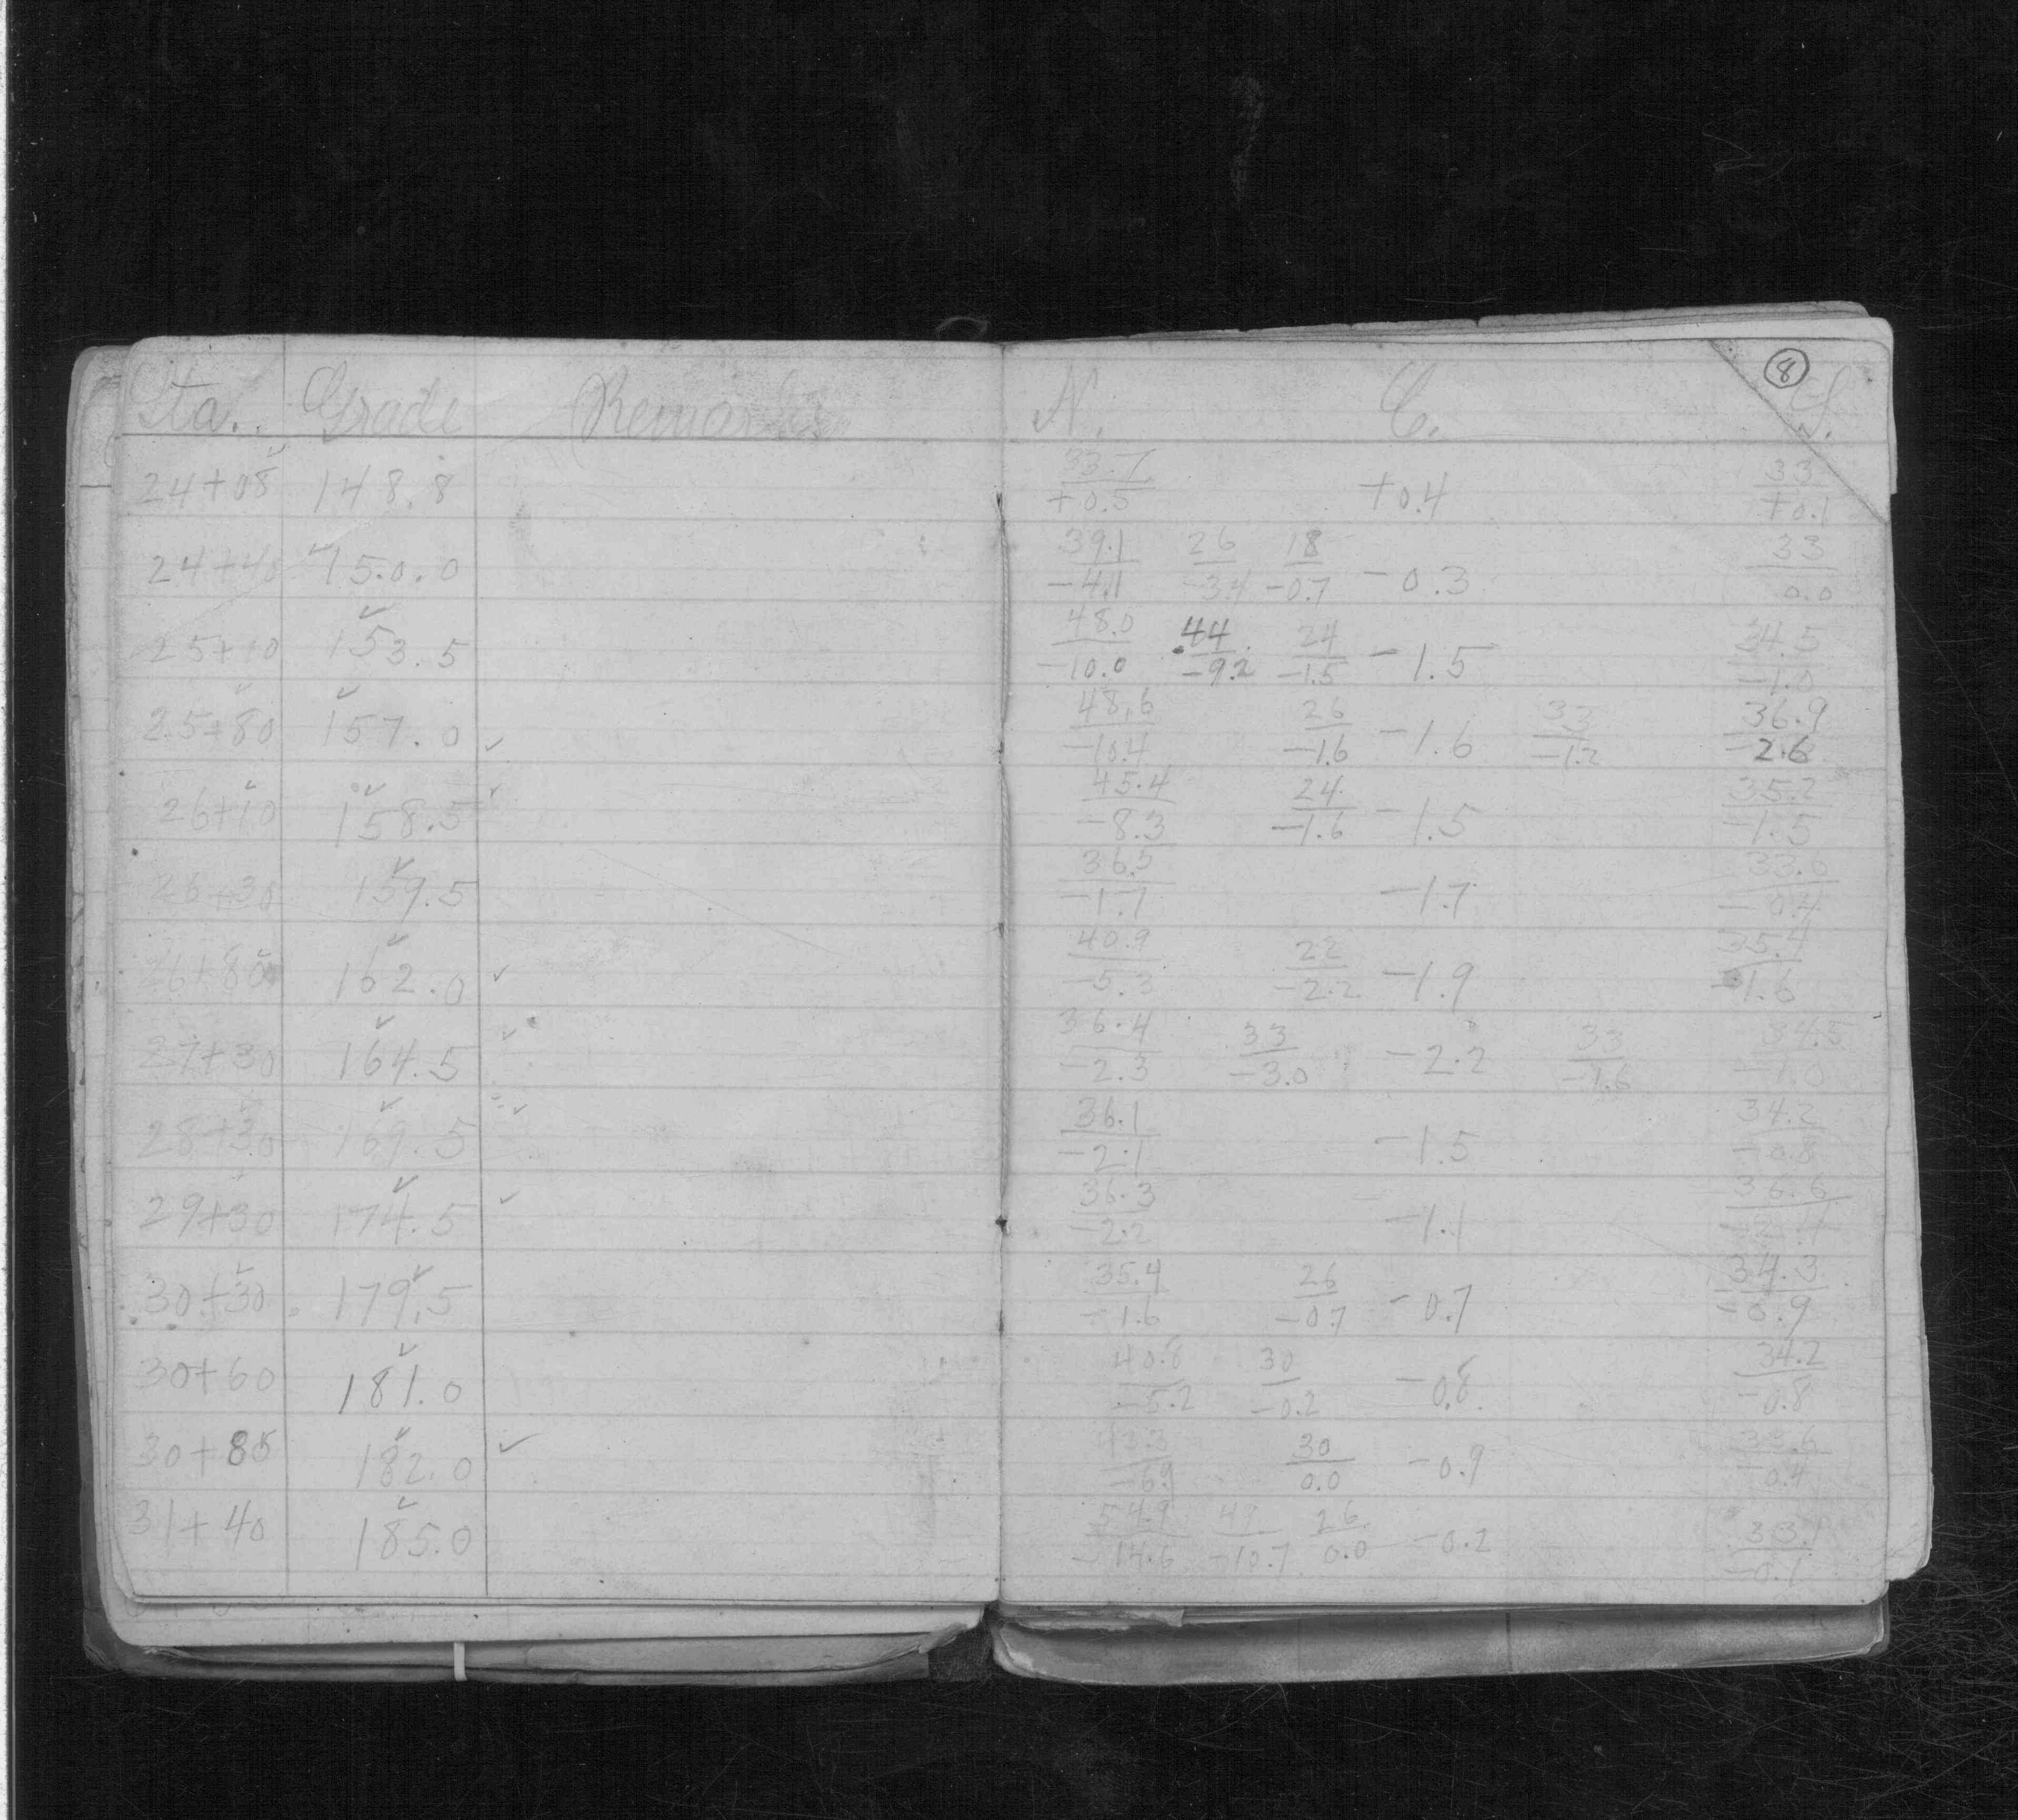 Sta. Grade Remarks N. C. S.
8
24+08 148.8 33.7/+0.5 +0.4 33/+0.1
24+40 150.0 39.1/-4.1 26/-3.4 18/-0.7 -0.3 33/0.0
25+10 153.5 48.0/-10.0 44/-9.2 24/-1.5 -1.5 34.5/-1.0
25+80 157.0 48.6/-10.4 26/-1.6 -1.6 33/-1.2 36.9/-2.6
26+10 158.5 45.4/-8.3 24/-1.6 -1.5 35.2/-1.5
26+30 159.5 36.5/-1.7 -1.7 33.6/-0.4
26+80 162.0 40.9/-5.3 22/-2.2 -1.9 35.4/-1.6
27+30 164.5 36.4/-2.3 33/-3.0 -2.2 33/-1.6 34.5/-1.0
28+30 169.5 36.1/-2.1 -1.5 34.2/-0.8
29+30 174.5 36.3/-2.2 -1.1 36.6
30+30 179.5 35.4/-1.6 26/-0.7 -0.7 34.3/-0.9
30+60 181.0 40.8/-5.2 30/-0.2 -0.8 34.2/-0.8
30+85 182.0 43.3/-6.9 30/0.0 -0.9 33.6/-0.4
31+40 185.0 54.9/-14.6 49/-10.7 26/0.0 -0.2 33.1/-0.1